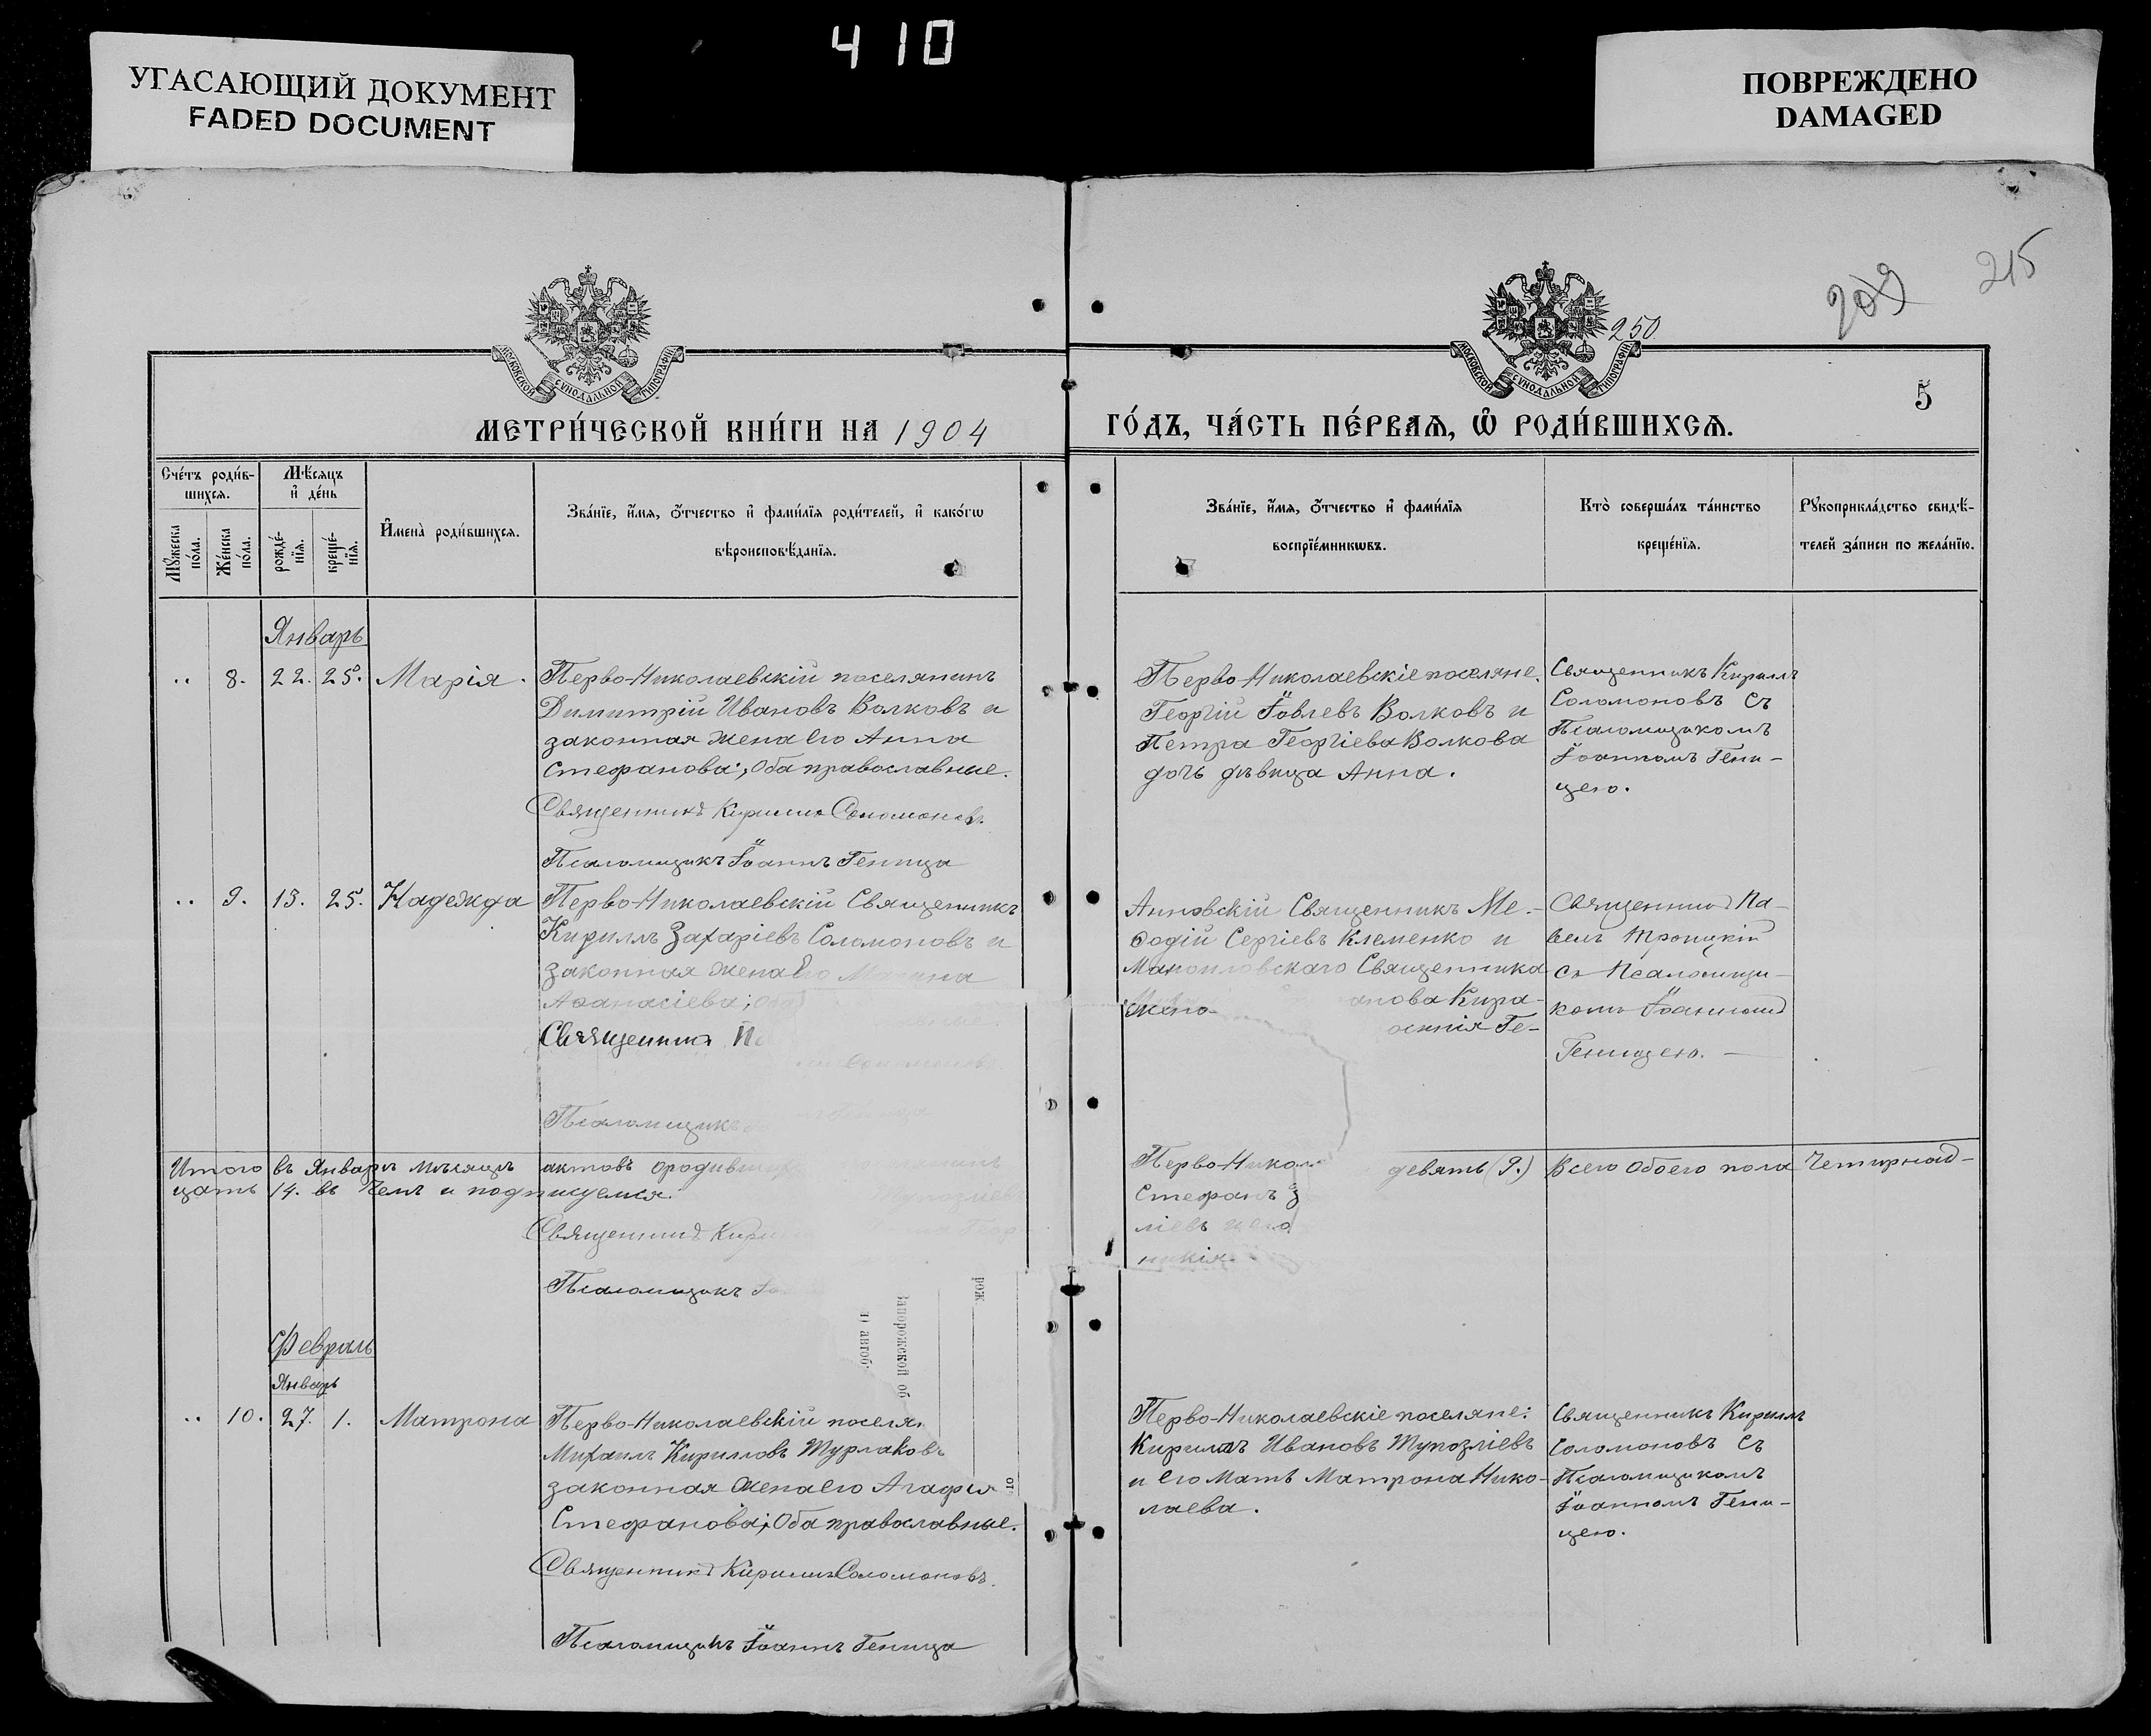 410
УГАСАЮЩИЙ ДОКУМЕНТ
FADED DOCUMENT
ПОВРЕЖДЕНО
DAMAGED
209
215
250.
МОСКОВСКОЙ СѴНОДАЛЬНОЙ ТИПОГРАФІИ
МОСКОВСКОЙ СѴНОДАЛЬНОЙ ТИПОГРАФІИ
5
МЕТРИ́ЧЕСКОЙ КНИ́ГИ НА 1904
ГО́ДЪ, ЧА́СТЬ ПЕ́РВАѦ, Ѡ҆ РОДИ́ВШИХСѦ.
Сче́тъ роди́в-
шихсѧ.
Мѣ́сяцъ
и҆ де́нь
Мꙋ́жеска по́ла.
Же́нска по́ла.
рожде́-
нїѧ.
креще́-
нїѧ.
И҆мена̀ роди́вшихсѧ.
Зва́нїе, и҆́мѧ, ѻ҆́тчество и҆ фами́лїѧ роди́телей, и҆ како́гѡ
вѣроисповѣ́данїѧ.
Зва́нїе, и҆́мѧ, ѻ҆́тчество и҆ фами́лїѧ
воспрїе́мникѡвъ.
Кто̀ соверша́лъ та́инство
креще́нїѧ.
Рꙋкоприкла́дство свидѣ́-
телей за́писи по жела́нїю.
Январь
.. 8. 22. 25. Марія.
Перво-Николаевскій поселянинъ
Димитрій Ивановъ Волковъ и
законная жена его Анна
Стефанова; Оба православные.
Священникъ Кириллъ Соломоновъ.
Псаломщикъ Іоаннъ Геница
Перво-Николаевскіе поселяне:
Георгій Іовлевъ Волковъ и
Петра Георгіева Волкова
дочь дѣвица Анна.
Священникъ Кириллъ
Соломоновъ съ
Псаломщикомъ
Іоанномъ Гени-
цею.
.. 9. 13. 25. Надежда
Перво-Николаевскій Священникъ
Кириллъ Захаріевъ Соломоновъ и
законная жена Его
Аѳанасіева;
Священникъ
Псаломщикъ
Анновскій Священникъ Ме-
ѳодій Сергіевъ Клеменко и
Священника
жена
анова Кира-
Ге-
Священникъ Па-
велъ Троицкій
съ Псаломщи-
комъ Іоанномъ
Геницею. —
Итого въ Январѣ мѣсяцѣ актовъ о родивш
девять (9.) Всего обоего пола Четырнад-
цать 14. въ чемъ и подписуемся.
Священникъ Кири
Псаломщикъ
Перво-Никол
Стефанъ
рож
Запорожской об
автоб
Февраль
Январь
.. 10. 27. 1. Матрона
Перво-Николаевскій поселян
Михаилъ Кирилловъ Турлаковъ
законная жена его Агафія
Стефанова; Оба православные.
Священникъ Кириллъ Соломоновъ.
Псаломщикъ Іоаннъ Геница
Перво-Николаевскіе поселяне:
Кириллъ Ивановъ Тупозліевъ
и его мать Матрона Нико-
лаева.
Священникъ Кириллъ
Соломоновъ съ
Псаломщикомъ
Іоанномъ Гени-
цею.